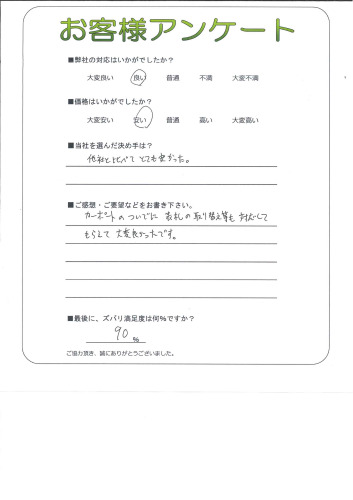 お客様アンケート
■弊社の対応はいかがでしたか?
大変良い 良い 普通 不満 大変不満
■価格はいかがでしたか?
大変安い 安い 普通 高い 大変高い
■当社を選んだ決め手は?
他社と比べて とても安かった。
■ご感想・ご要望などをお書き下さい。
カーポートのついでに 表札の取り替え等も 対応して
もらえて 大変良かったです。
■最後に、ズバリ満足度は何%ですか?
90 %
ご協力頂き、誠にありがとうございました。